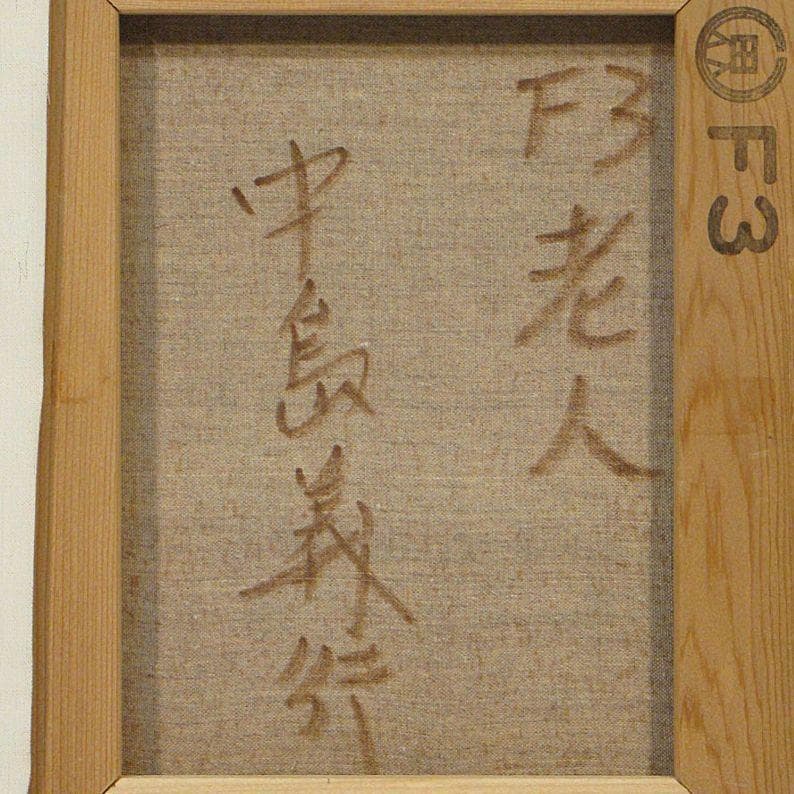 F3
老人
中島義行
F3